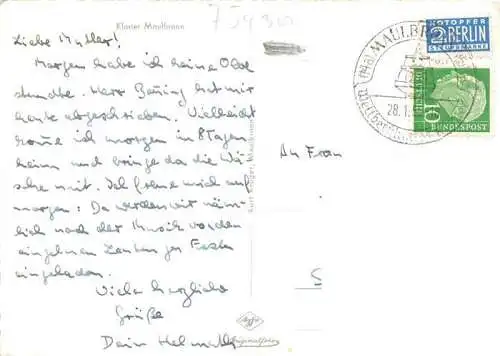 Kloster Maulbronn
Liebe Mutter!
Morgen habe ich keine
stunde. Herr hat mir
heute abgeschrieben. Vielleicht
komme ich morgen in 8 Tagen
heim und bringe da die Wä-
sche mit. Ich freue mich auf
morgen: Da werden wir näm-
lich nach der Musik von den
einzelnen Leuten zu
eingeladen.
Viele herzliche
Grüße
Dein Helmuth
An Frau
NOTOPFER
2 BERLIN
STEUERMARKE
MAULBRONN
28.1.
10
DEUTSCHE
BUNDESPOST
Agfa
Originalfoto